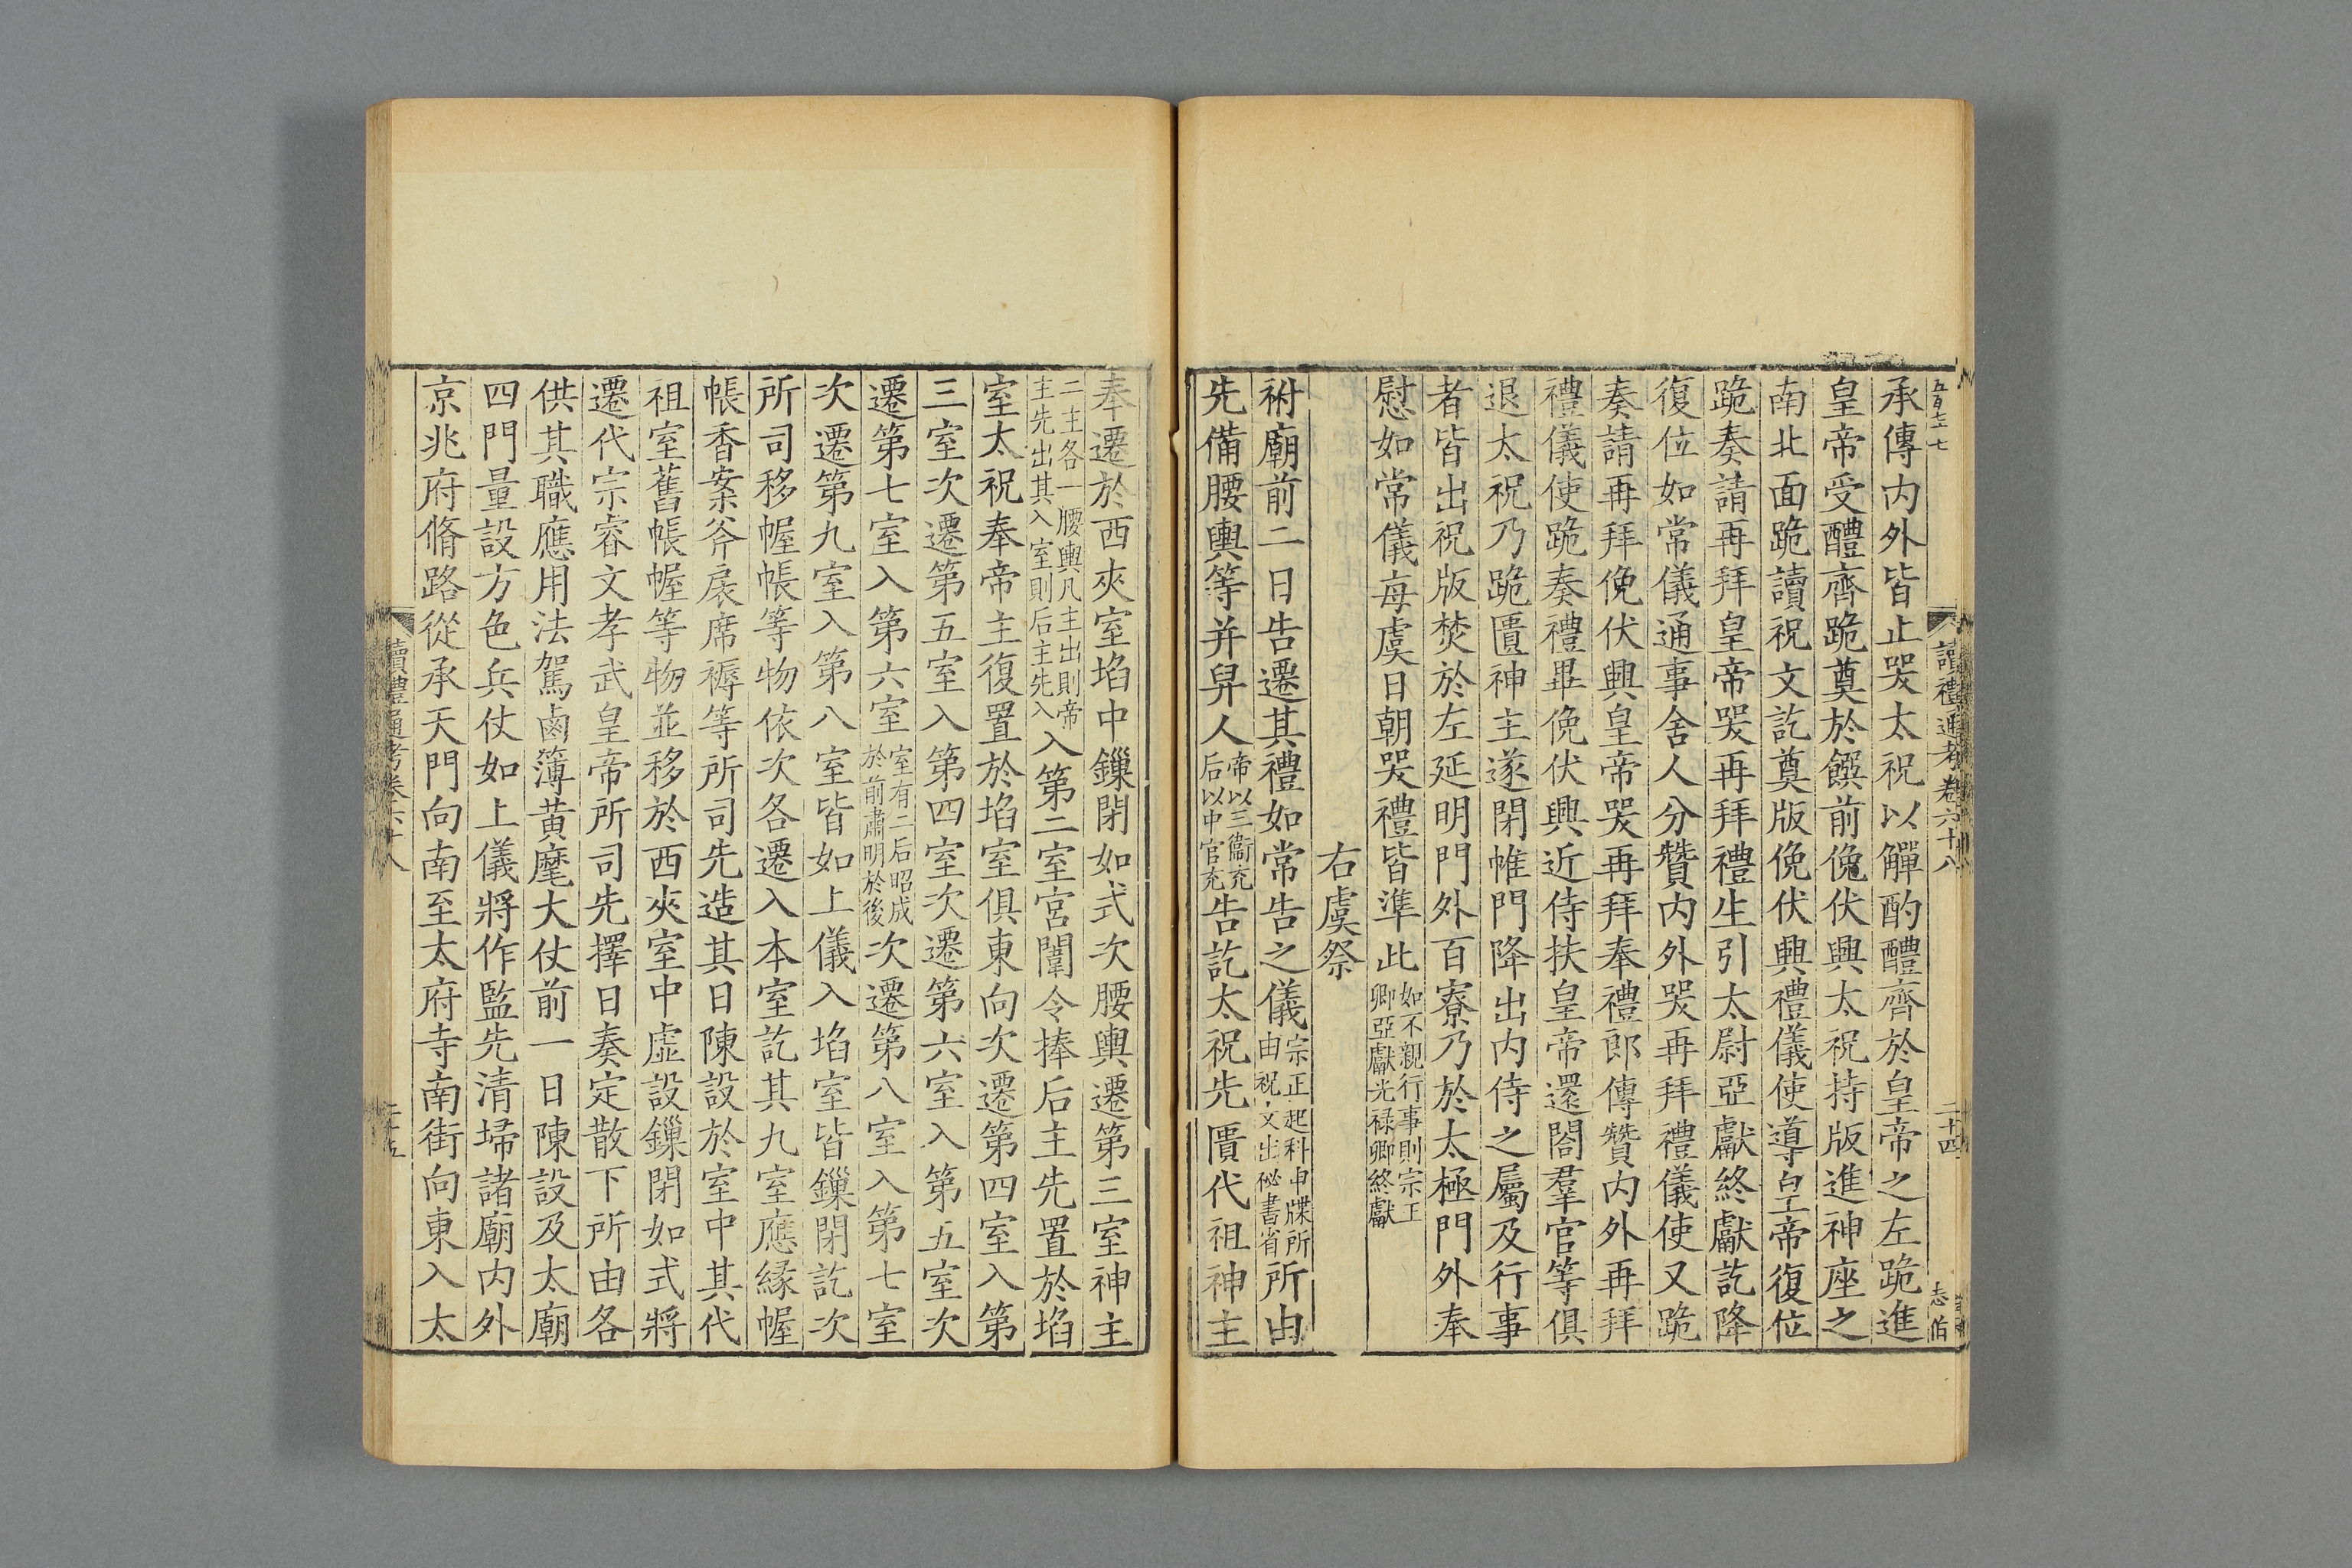 讀禮通考卷六十八
二十四
志伯
承傳内外皆止哭太祝以觶酌醴齊於皇帝之左跪進
皇帝受醴齊跪奠於饌前俛伏興太祝持版進神座之
南北面跪讀祝文訖奠版俛伏興禮儀使導皇帝復位
跪奏請再拜皇帝哭再拜禮生引太尉亞獻終獻訖降
復位如常儀通事舍人分贊内外哭再拜禮儀使又跪
奏請再拜俛伏興皇帝哭再拜奉禮郎傳贊内外再拜
禮儀使跪奏禮畢俛伏興近侍扶皇帝還閤羣官等俱
退太祝乃跪匱神主遂閉帷門降出内侍之屬及行事
者皆出祝版焚於左延明門外百寮乃於太極門外奉
慰如常儀毎虞日朝哭禮皆準此如不親行事則宗正卿亞獻光禄卿終獻
右虞祭
祔廟前二日告遷其禮如常告之儀宗正起科申牒所由祝文出祕書省所由
先備腰輿等并舁人帝以三衞充后以中官充告訖太祝先匱代祖神主
奉遷於西夾室埳中鏁閉如式次腰輿遷第三室神主
二主各一腰輿凡主出則帝主先出其入室則后主先入入第二室宮闈令捧后主先置於埳
室太祝奉帝主復置於埳室俱東向次遷第四室入第
三室次遷第五室入第四室次遷第六室入第五室次
遷第七室入第六室室有二后昭成於前肅明於後次遷第八室入第七室
次遷第九室入第八室皆如上儀入埳室皆鏁閉訖次
所司移幄帳等物依次各遷入本室訖其九室應縁幄
帳香案斧扆席褥等所司先造其日陳設於室中其代
祖室舊帳幄等物並移於西夾室中虛設鏁閉如式將
遷代宗睿文孝武皇帝所司先擇日奏定散下所由各
供其職應用法駕鹵簿黄麾大仗前一日陳設及太廟
四門量設方色兵仗如上儀將作監先清埽諸廟内外
京兆府脩路從承天門向南至太府寺南街向東入太
讀禮通考卷六十八
二十五